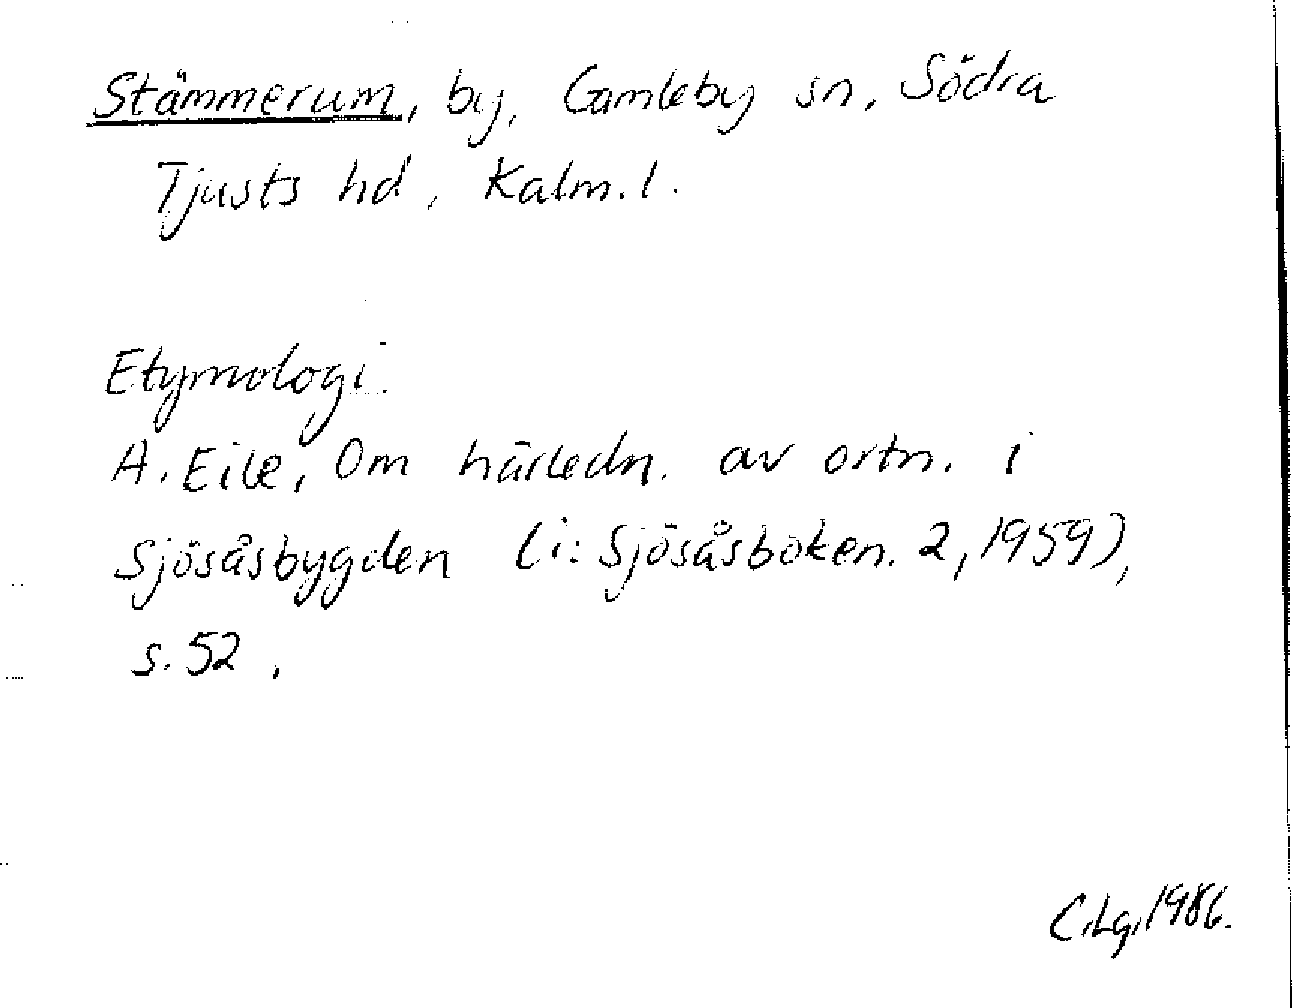 Stämmerum, by, Gamleby sn, Södra
Tjusts hd, Kalm. l.
Etymologi:
A. Eile, Om härledn. av ortn. i
Sjösåsbygden (i: Sjösåsboken. 2, 1959),
s. 52.
C.Lg, 1986.